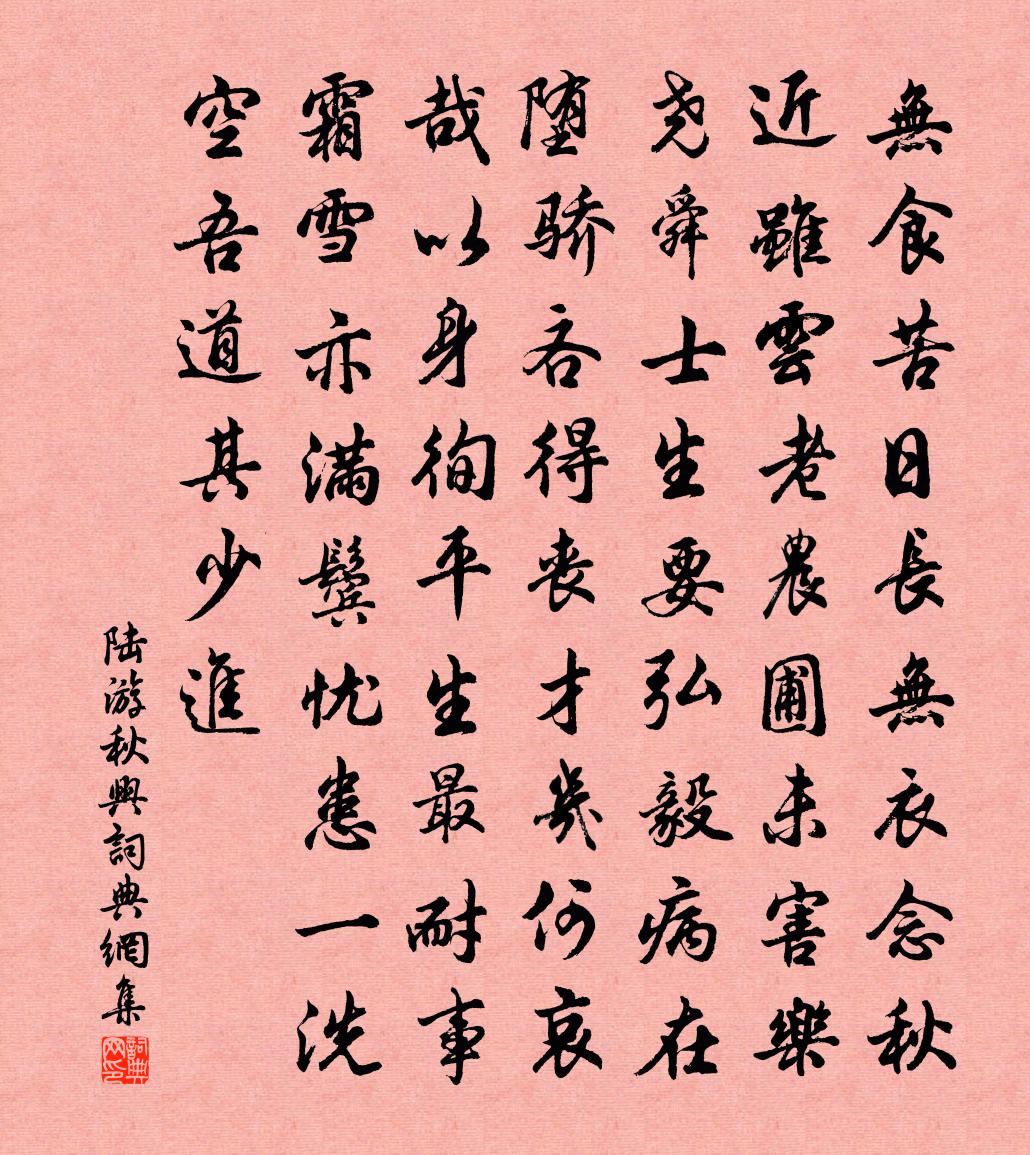 無食苦日長無衣念秋
近雖雲老農圃未害樂
尧舜士生要弘毅病在
堕骄吝得丧才幾何哀
哉以身徇平生最耐事
霜雪亦满鬓忧患一洗
空吾道其少進
陆游秋興詞典網集
詞典网印